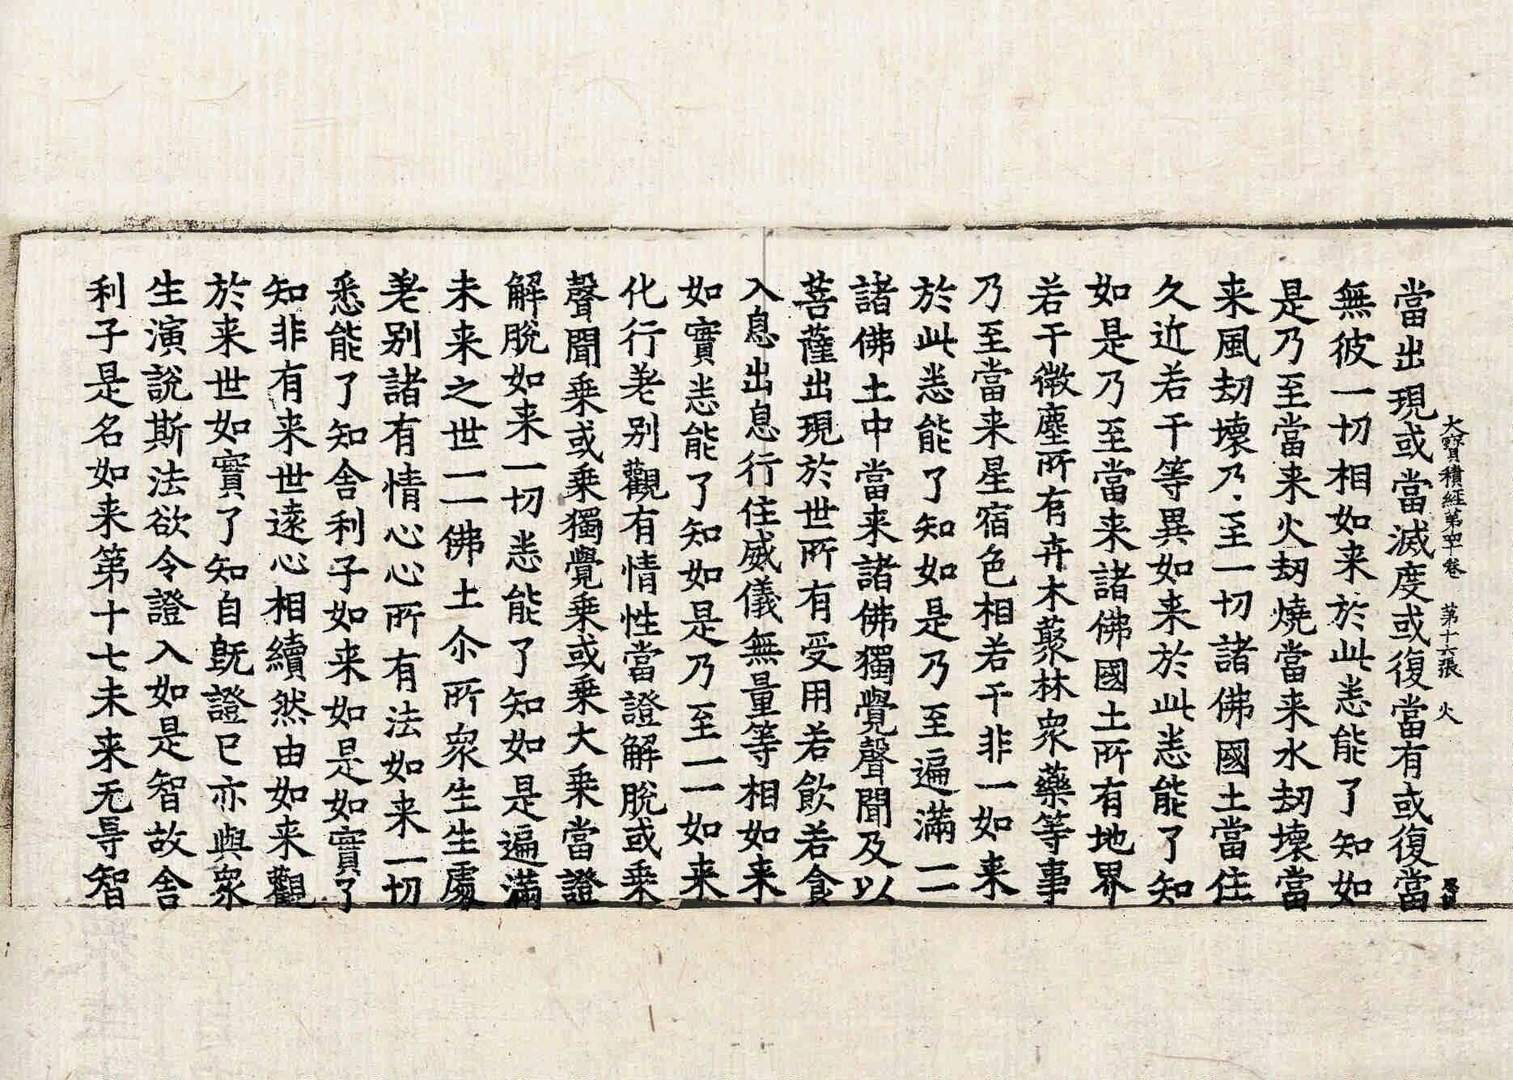 大寶積經第四十卷 第十六張 火
當出現或當滅度或復當有或復當
無彼一切相如来於此悉能了知如
是乃至當来火劫燒當来水劫壞當
来風劫壞乃至一切諸佛國土當住
久近若干等異如来於此悉能了知
如是乃至當来諸佛國土所有地界
若干微塵所有卉木藂林衆藥等事
乃至當来星宿色相若干非一如来
於此悉能了知如是乃至遍滿一一
諸佛土中當来諸佛獨覺聲聞及以
菩薩出現於世所有受用若飲若食
入息出息行住威儀無量等相如来
如實悉能了知如是乃至一一如来
化行差别觀有情性當證解脫或乘
聲聞乘或乘獨覺乘或乘大乘當證
解脫如来一切悉能了知如是遍滿
未来之世一一佛土尒所衆生生處
差别諸有情心心所有法如来一切
悉能了知舍利子如来如是如實了
知非有来世遠心相續然由如来觀
於来世如實了知自旣證已亦與衆
生演說斯法欲令證入如是智故舍
利子是名如来第十七未来无㝵智